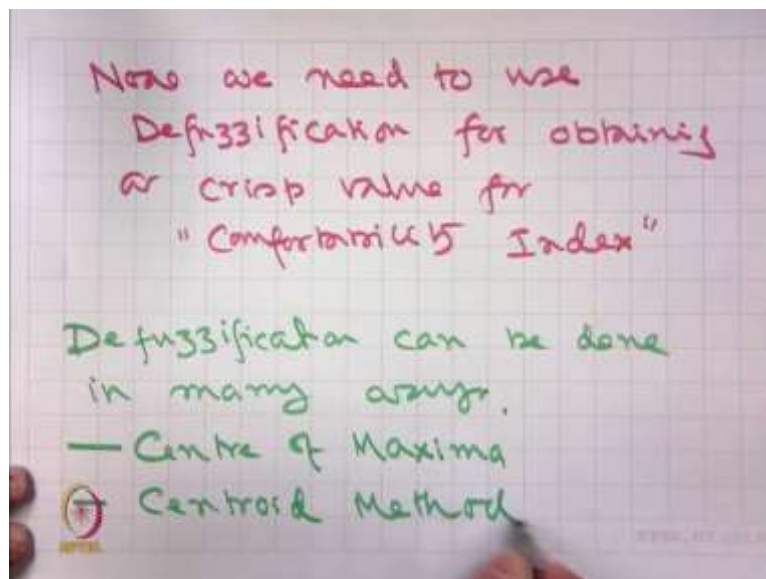 Now we need to use
Defuzzification for obtaining
a crisp value for
"Comfortability Index"
Defuzzification can be done
in many ways.
— Centre of Maxima
— Centroid Method
NPTEL